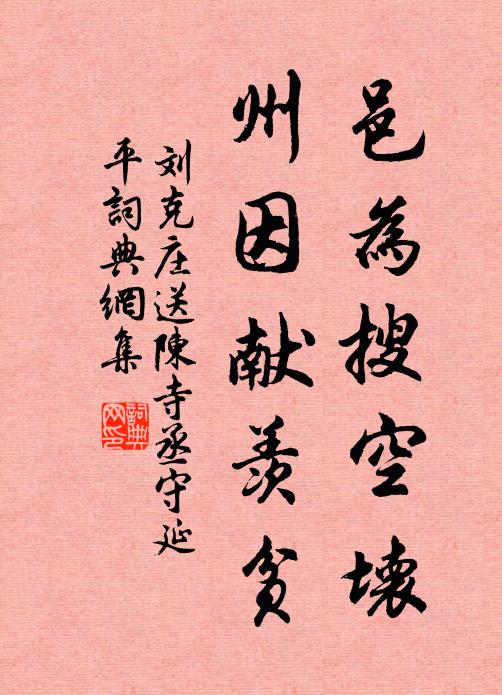 邑為搜空壞
州因献羨貧
刘克庄送陳寺丞守延
平詞典網集
詞典网印